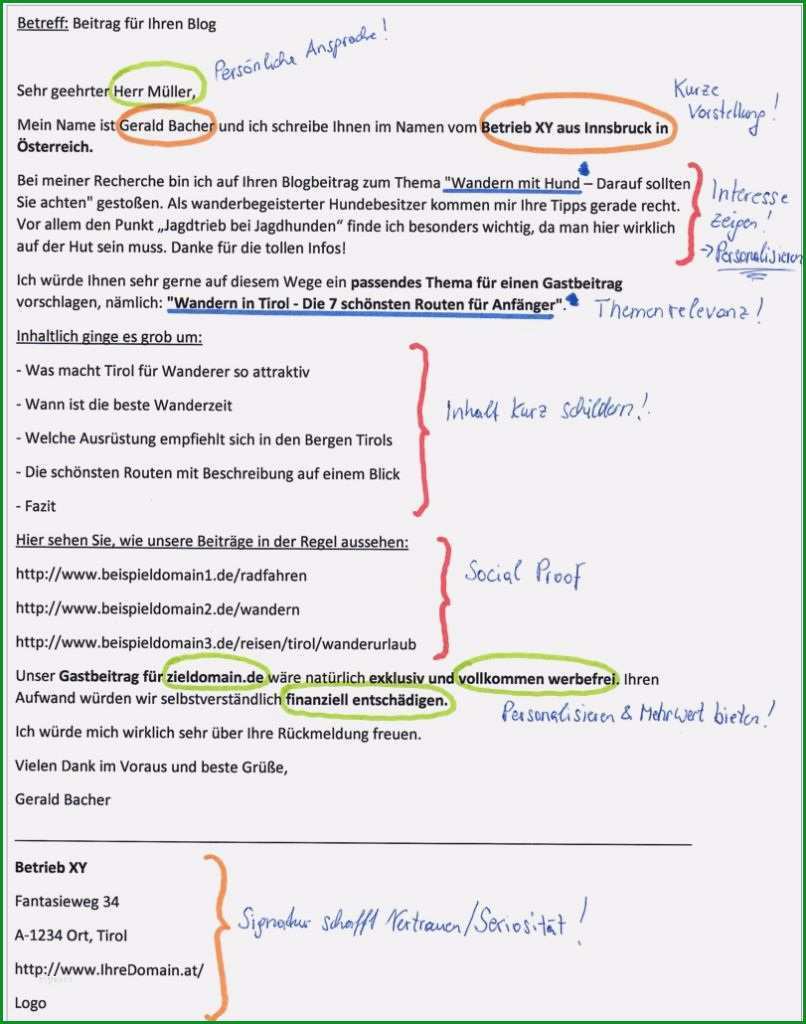 Betreff: Beitrag für Ihren Blog
Persönliche Ansprache!
Sehr geehrter Herr Müller,
Kurze
Vorstellung!
Mein Name ist Gerald Bacher und ich schreibe Ihnen im Namen vom Betrieb XY aus Innsbruck in
Österreich.
Bei meiner Recherche bin ich auf Ihren Blogbeitrag zum Thema "Wandern mit Hund – Darauf sollten
Sie achten" gestoßen. Als wanderbegeisterter Hundebesitzer kommen mir Ihre Tipps gerade recht.
Vor allem den Punkt „Jagdtrieb bei Jagdhunden“ finde ich besonders wichtig, da man hier wirklich
auf der Hut sein muss. Danke für die tollen Infos!
Interesse
zeigen!
→ Personalisieren
Ich würde Ihnen sehr gerne auf diesem Wege ein passendes Thema für einen Gastbeitrag
vorschlagen, nämlich: "Wandern in Tirol - Die 7 schönsten Routen für Anfänger".
Themenrelevanz!
Inhaltlich ginge es grob um:
- Was macht Tirol für Wanderer so attraktiv
- Wann ist die beste Wanderzeit
- Welche Ausrüstung empfiehlt sich in den Bergen Tirols
- Die schönsten Routen mit Beschreibung auf einem Blick
- Fazit
Inhalt kurz schildern!
Hier sehen Sie, wie unsere Beiträge in der Regel aussehen:
http://www.beispieldomain1.de/radfahren
http://www.beispieldomain2.de/wandern
http://www.beispieldomain3.de/reisen/tirol/wanderurlaub
Social Proof
Unser Gastbeitrag für zieldomain.de wäre natürlich exklusiv und vollkommen werbefrei. Ihren
Aufwand würden wir selbstverständlich finanziell entschädigen.
Personalisieren & Mehrwert bieten!
Ich würde mich wirklich sehr über Ihre Rückmeldung freuen.
Vielen Dank im Voraus und beste Grüße,
Gerald Bacher
Betrieb XY
Fantasieweg 34
A-1234 Ort, Tirol
http://www.IhreDomain.at/
Logo
Signatur schafft Vertrauen/Seriosität!